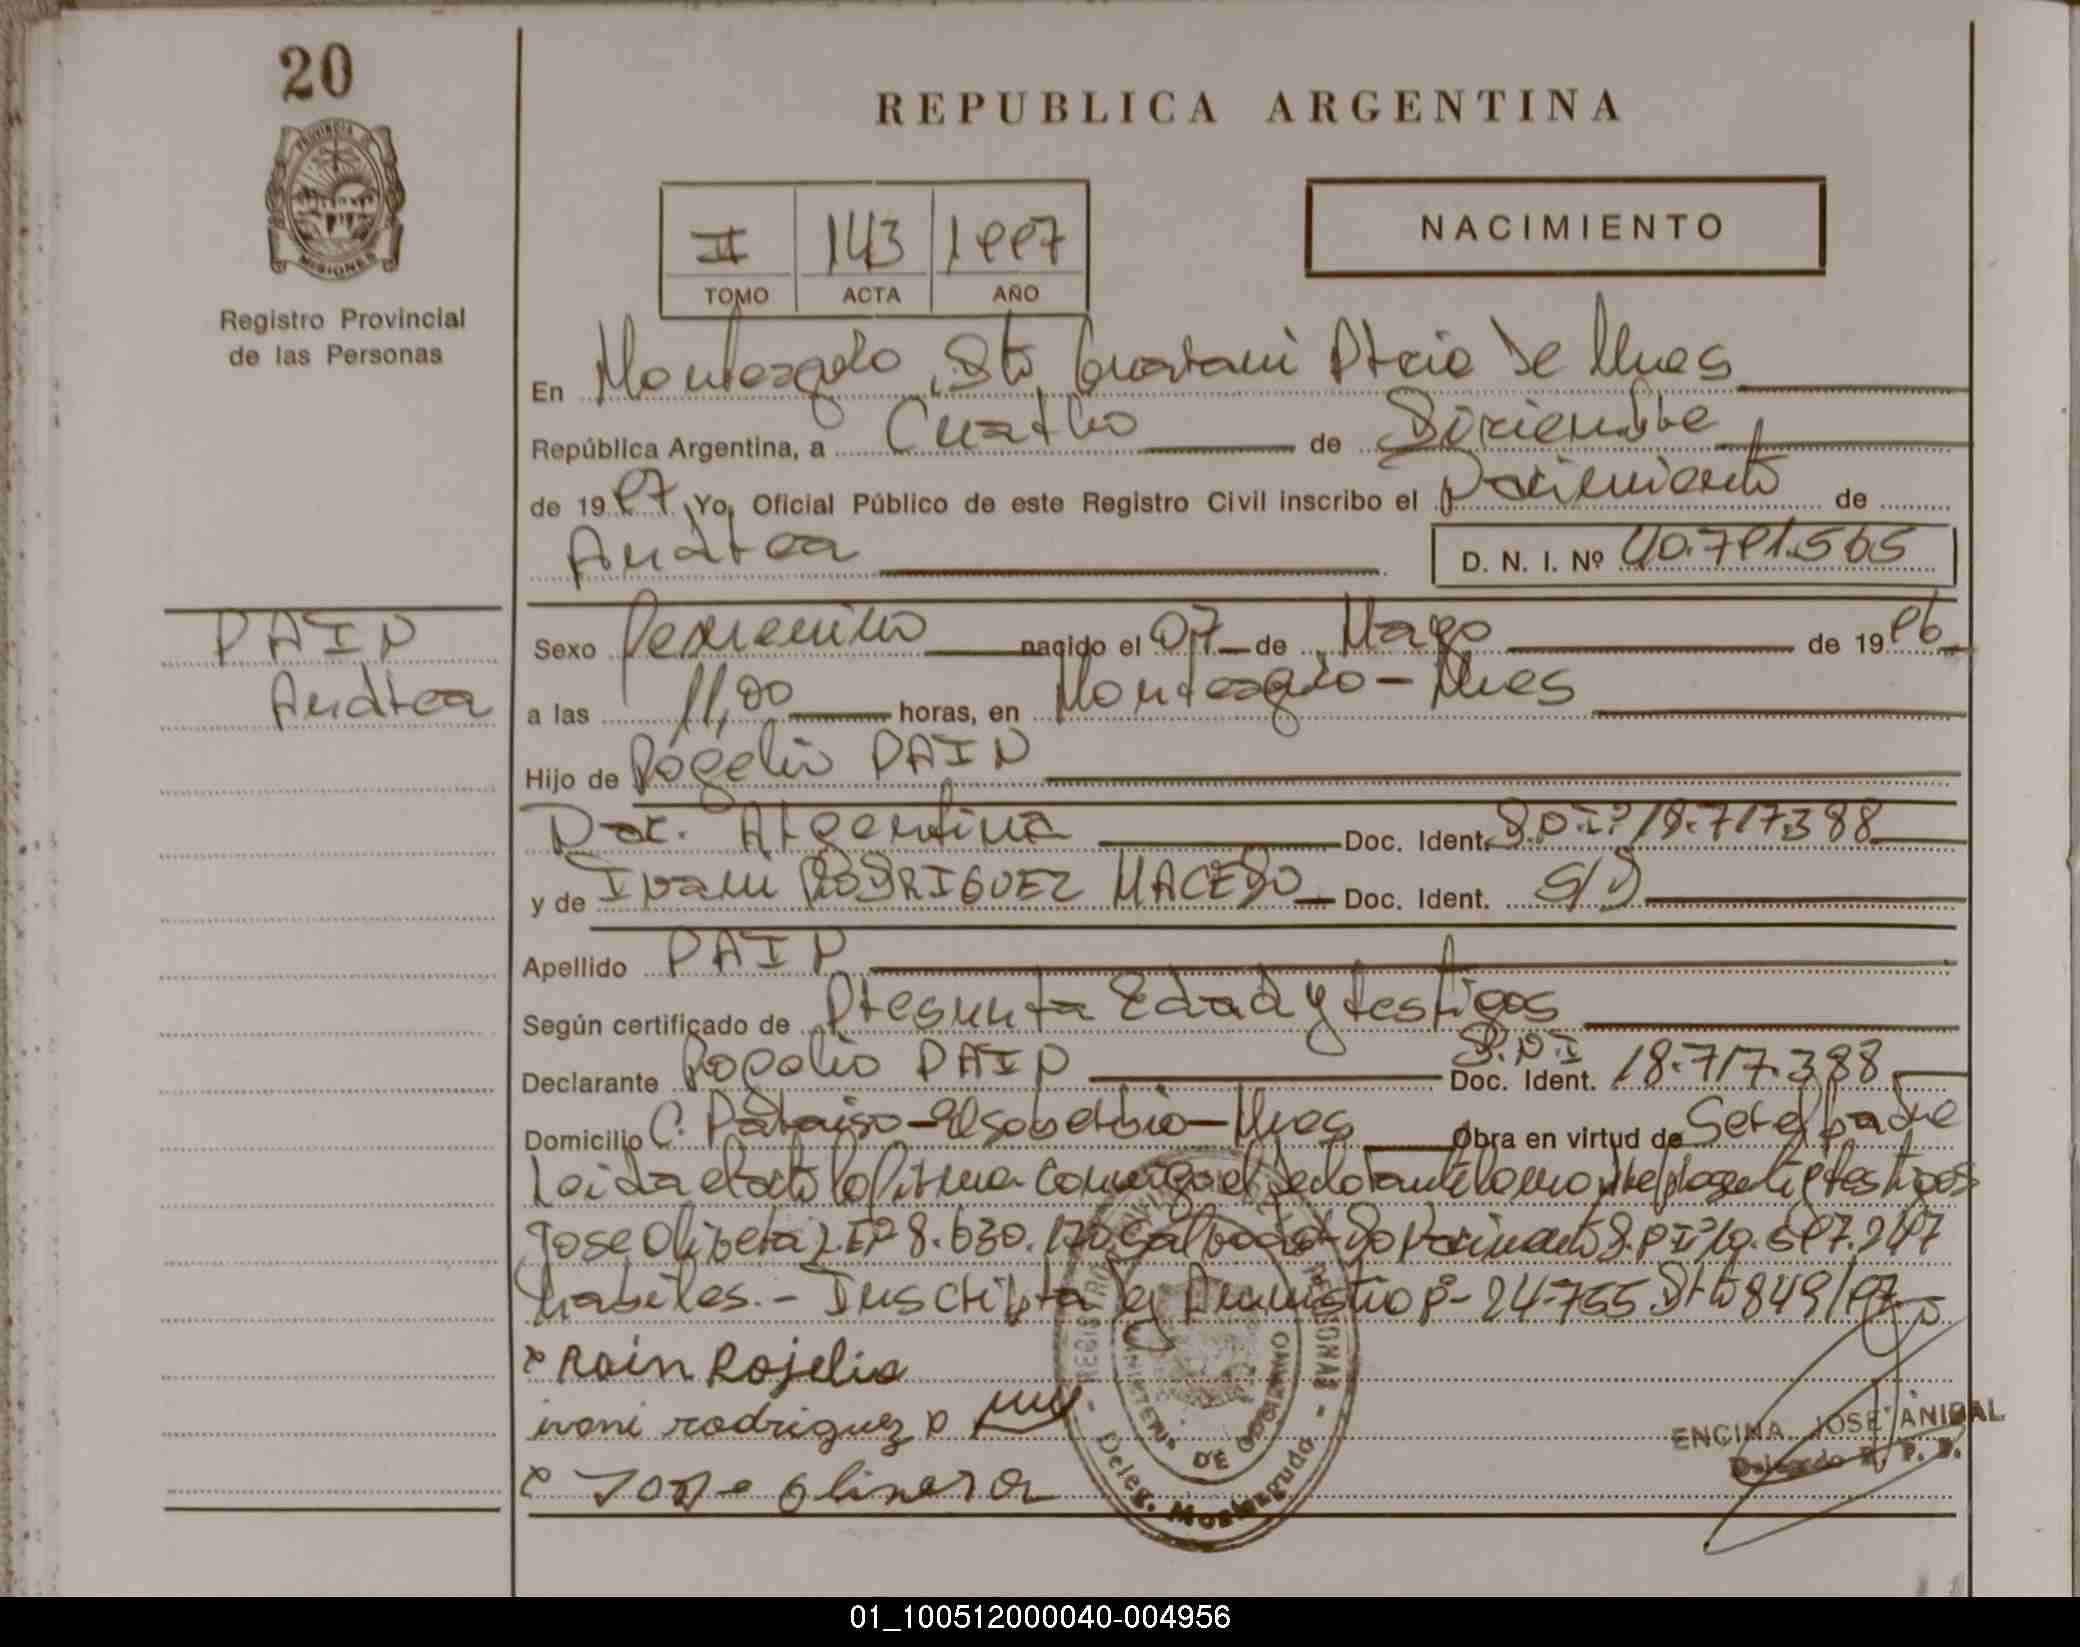 20
PROVINCIA DE
MISIONES
Registro Provincial
de las Personas
REPUBLICA ARGENTINA
II 143 1997
TOMO ACTA AÑO
NACIMIENTO
En Monteagudo, Dto Guarani Pcia de Mnes
República Argentina, a Cuatro de Diciembre
de 1997, Yo, Oficial Público de este Registro Civil inscribo el Nacimiento de
Andrea
D. N. I. Nº 40.791.565
PAIN
Andrea
Sexo Femenino nacido el 07 de Mayo de 1996
a las 11,00 horas, en Monteagudo - Mnes
Hijo de Rogelio PAIN
Nac. Argentina Doc. Ident. D.N.I. 18.717.388
y de Ivani RODRIGUEZ MACEDO Doc. Ident. S/D
Apellido PAIN
Según certificado de Presunta Edad y testigos
Declarante Rogelio PAIN D.N.I Doc. Ident. 18.717.388
Domicilio C. Paraiso - El soberbio - Mnes Obra en virtud de Ser el padre
Leida el acta la firma conmigo el declarante la madre testigos
Jose Olivera 8.630.170 Nacimiento
habiles. - Inscripta Ley 24.755 Dto 849/97
x Pain Rojelio
ivani rodriguez x
x Jose olivera
REGISTRO PERSONAS
MINISTERIO DE GOBIERNO
Deleg. Monteagudo
ENCINA JOSE ANIBAL
Delegado R. P. P.
01_100512000040-004956